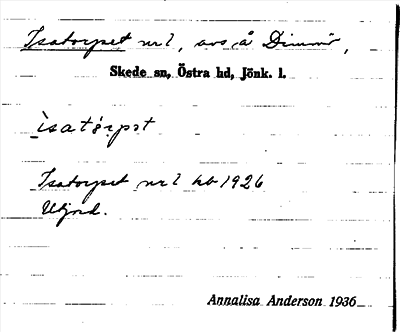 Isatorpet nr 1, avs å Dimmö,
Skede sn, Östra hd, Jönk. l.
ìsatòrpət
Isatorpet nr 1 kb 1926
Utjord.
Annalisa Anderson 1936